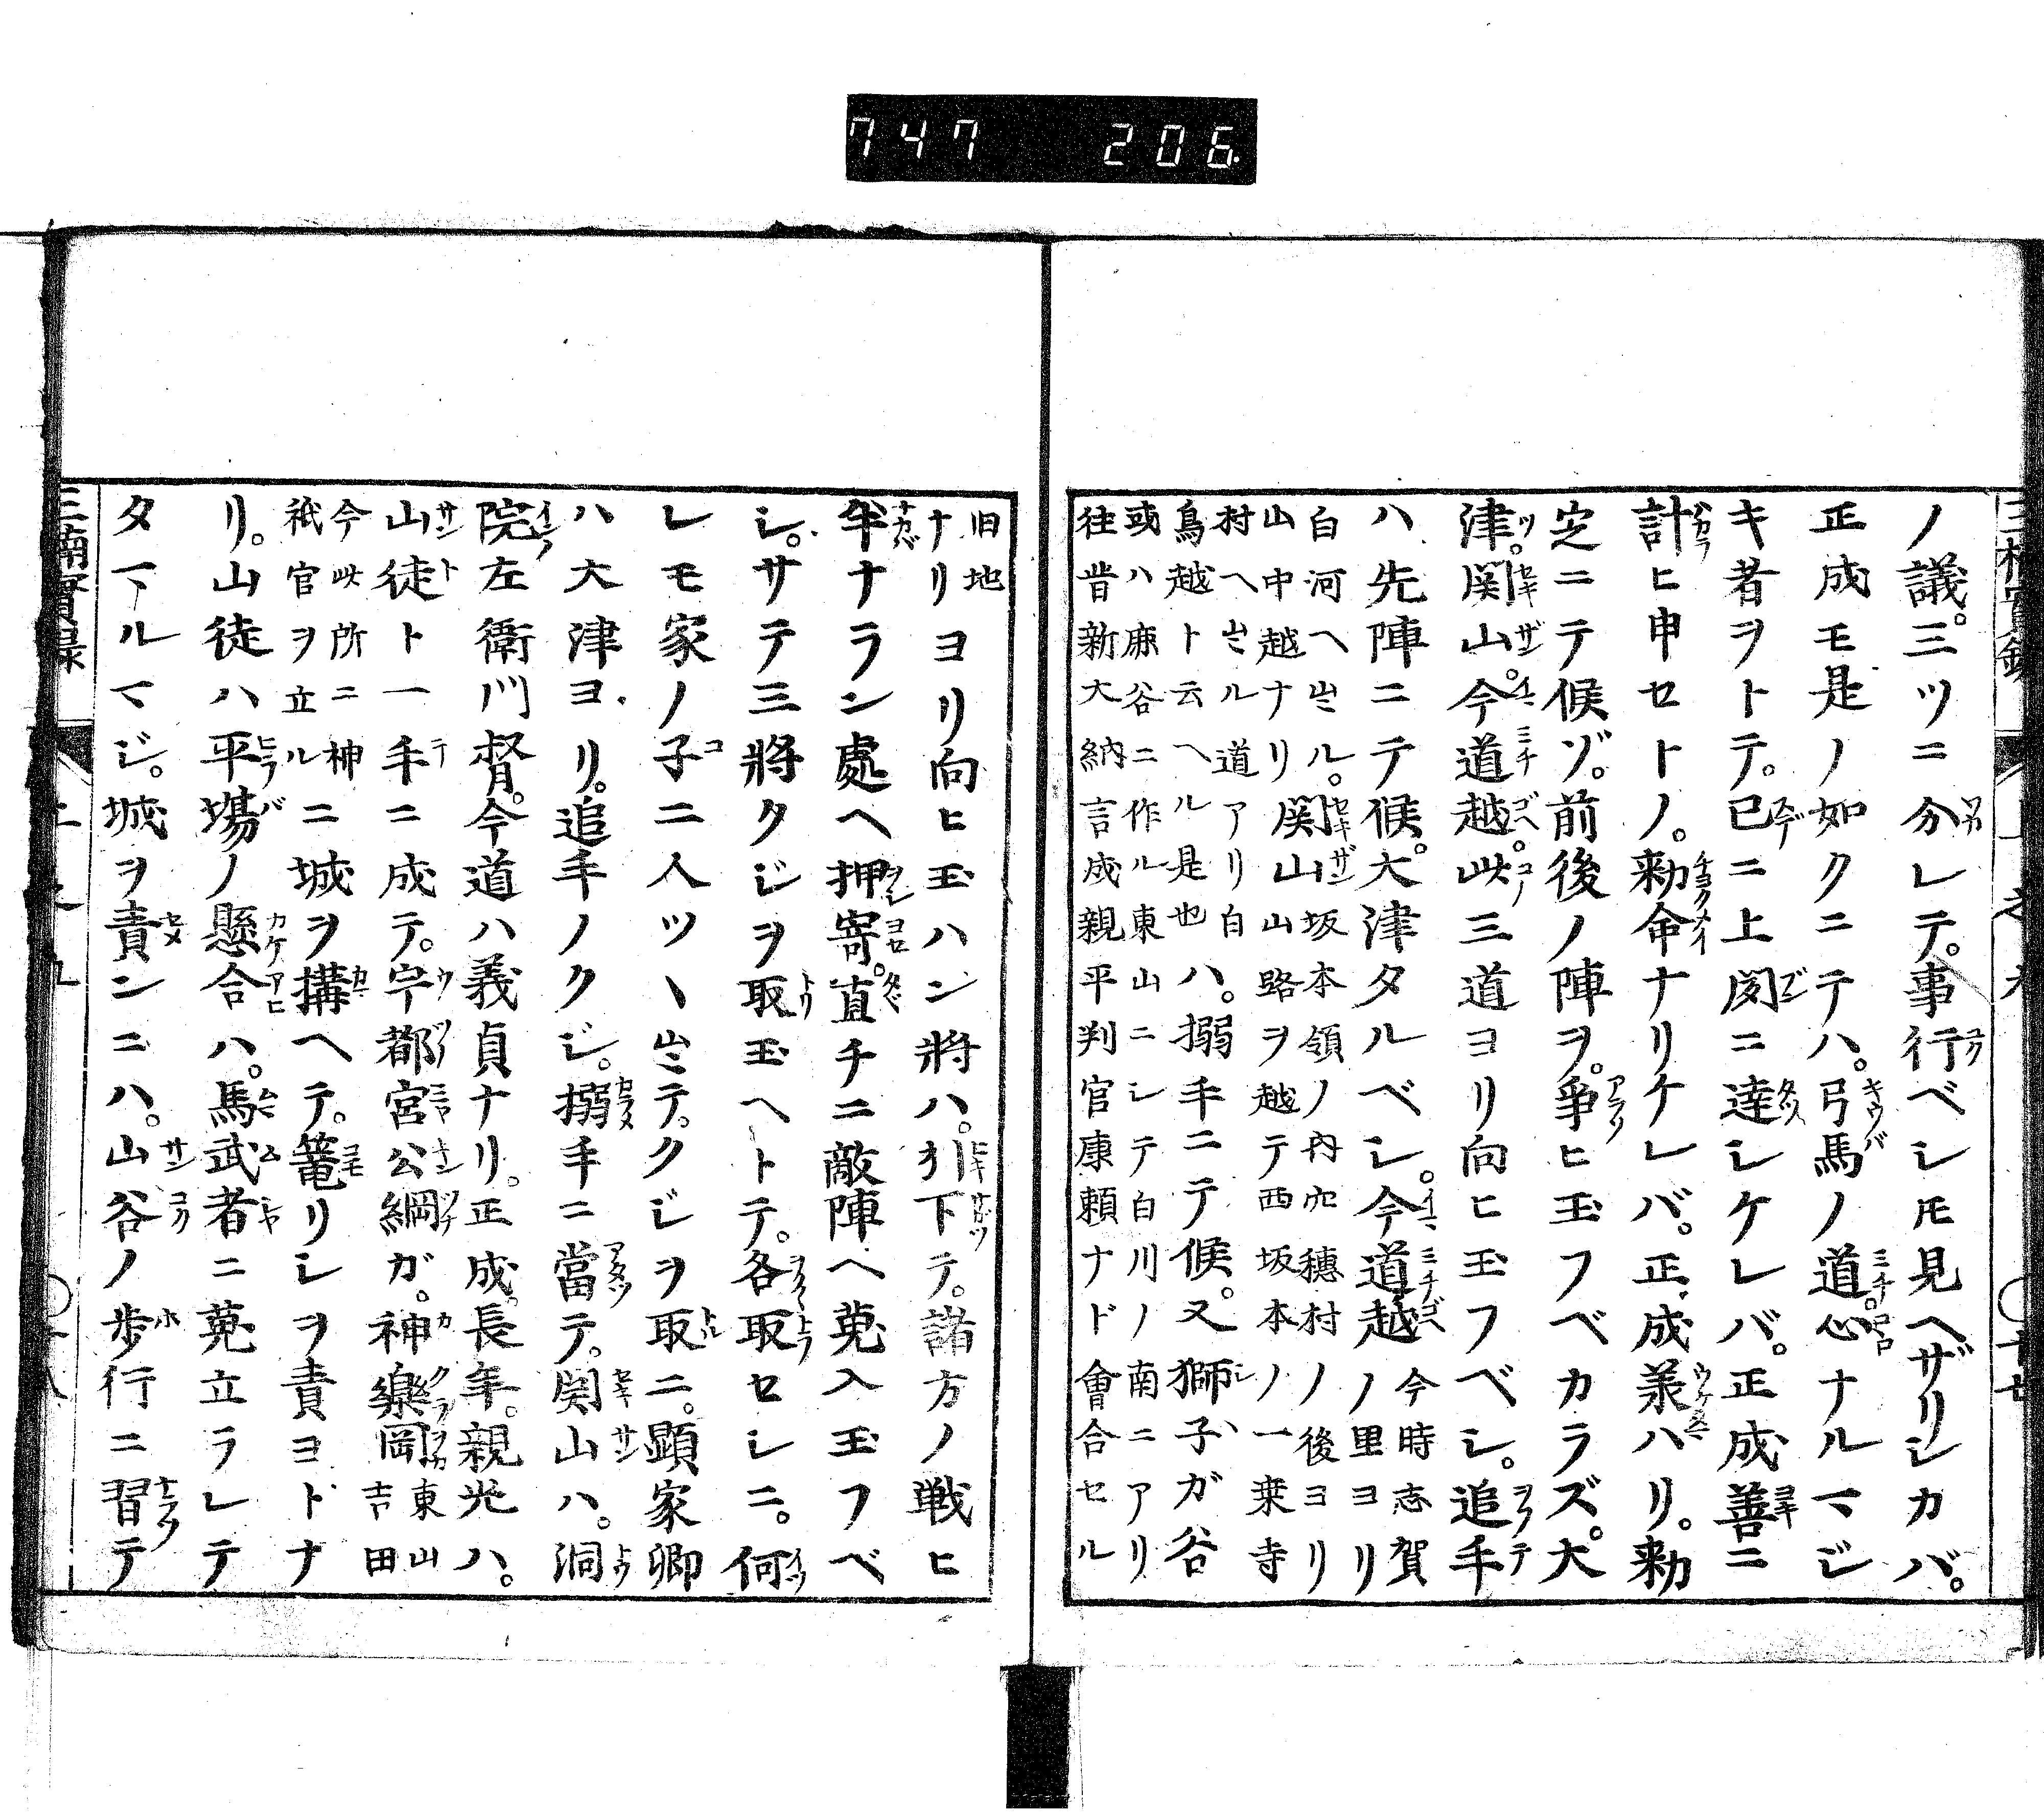 747 206
ノ議。三ツニ分レテ。事行ベシ𪜈見ヘザリシカバ。
正成モ是ノ如クニテハ。弓馬ノ道。心ナルマジ
キ者ヲトテ。已ニ上聞ニ達シケレバ。正成善ニ
計ヒ申セトノ。勅命ナリケレバ。正成羕ハリ。勅
定ニテ候ゾ。前後ノ陣ヲ。爭ヒ玉フベカラズ。大
津。関山。今道越。此三道ヨリ向ヒ玉フベシ。追手
ハ先陣ニテ候。大津タルベシ。今道越
今時志賀
ノ里ヨリ
白河ヘ出ル。関山坂本領ノ内穴穂村ノ後ヨリ
山中越ナリ 山路ヲ越テ西坂本ノ一乗寺
村ヘ出ル道アリ白
鳥越ト云ヘル是也
ハ。搦手ニテ候。又獅子ガ谷
或ハ鹿谷ニ作ル東山ニシテ白川ノ南ニアリ
往昔新大納言成親平判官康頼ナド會合セル
旧地
ナリ
ヨリ向ヒ玉ハン將ハ。引下テ。諸方ノ戦ヒ
半ナラン處ヘ押寄。直チニ敵陣ヘ蒐入玉フベ
シ。サテ三將クジヲ取玉ヘトテ。各取セシニ。何
レモ家ノ子二人ツヽ出テ。クジヲ取ニ。顕家卿
ハ大津ヨリ。追手ノクジ。搦手ニ當テ。関山ハ。洞
院左衛門督。今道ハ義貞ナリ。正成。長年。親光ハ。
山徒ト一手ニ成テ。宇都宮公綱ガ。神樂岡
東山
吉田
今此所ニ神
祇官ヲ立ル
ニ城ヲ搆ヘテ。篭リシヲ責ヨトナ
リ。山徒ハ平塲ノ懸合ハ。馬武者ニ蒐立ラレテ
タマルマジ。城ヲ責ンニハ。山谷ノ歩行ニ習テ